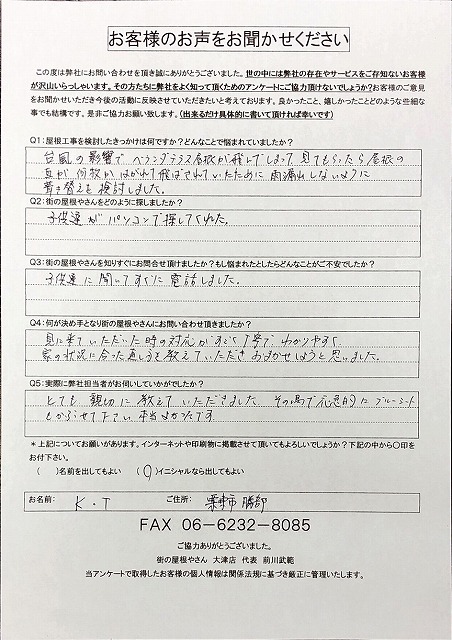 お客様のお声をお聞かせください
この度は弊社にお問い合わせを頂き誠にありがとうございました。世の中には弊社の存在やサービスをご存知ないお客様
が沢山いらっしゃいます。その方たちに弊社をよく知って頂くためのアンケートにご協力頂けないでしょうか?お客様のご意見
をお聞かせいただき今後の活動に反映させていただきたいと考えております。良かったこと、嬉しかったことどのような些細な
事でも結構です。是非ご協力お願い致します。(出来るだけ具体的に書いて頂ければ幸いです)
Q1:屋根工事を検討したきっかけは何ですか?どんなことで悩まれていましたか?
台風の影響でベランダテラス屋根が飛んでしまって見てもらったら屋根の
瓦が何枚かはがれて飛ばされていたために雨漏出しないように
葺き替えを検討しました。
Q2:街の屋根やさんをどのように探しましたか?
子供達がパソコンで探してくれた。
Q3:街の屋根やさんを知りすぐにお問合せ頂けましたか?もし悩まれたとしたらどんなことがご不安でしたか?
子供達に聞いてすぐに電話しました。
Q4:何が決め手となり街の屋根やさんにお問い合わせ頂きましたか?
見に来ていただいた時の対応がすごく丁寧で、わかりやすく
家の状況に合った直し方を教えていただきおまかせしようと思いました。
Q5:実際に弊社担当者がお伺いしていかがでしたか?
とても親切に教えていただきました。その場で応急的にブルーシート
もかぶせて下さい本当よかったです。
*上記についてお願いがあります。インターネットや印刷物に掲載させて頂いてもよろしいでしょうか?下記の中から〇印を
お付け下さい。
( )名前を出してもよい (〇)イニシャルなら出してもよい
お名前: K・T ご住所: 栗東市 勝部
FAX 06-6232-8085
ご協力ありがとうございました。
街の屋根やさん 大津店 代表 前川武範
当アンケートで取得したお客様の個人情報は関係法規に基づき厳正に管理いたします。